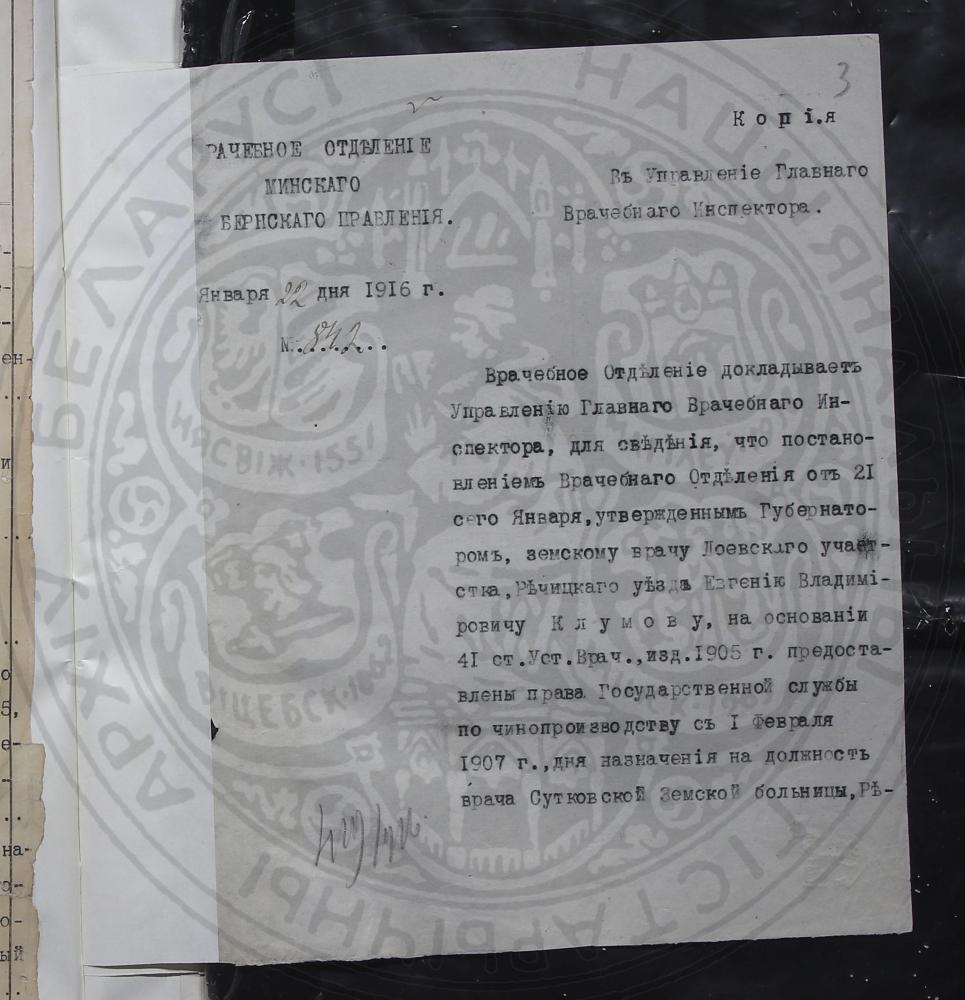 3
Копія
РАЧЕБНОЕ ОТДѢЛЕНІЕ
МИНСКАГО
БЕРНСКАГО ПРАВЛЕНІЯ.
Въ Управленіе Главнаго
Врачебнаго Инспектора.
Января 22 дня 1916 г.
№ 842
Врачебное Отдѣленіе докладываетъ
Управленію Главнаго Врачебнаго Ин-
спектора, для свѣдѣнія, что постано-
вленіемъ Врачебнаго Отдѣленія отъ 2I
сего Января,утвержденнымъ Губернато-
ромъ, земскому врачу Лоевскаго участ-
стка,Рѣчицкаго уѣзда Евгенію Владимі-
ровичу Клумову, на основаніи
4I ст.Уст.Врач.,изд.I905 г. предоста-
влены права Государственной службы
по чинопроизводству съ I Февраля
I907 г.,дня назначенія на должность
врача Сутковской Земской больницы,Рѣ-
НАЦЫЯНАЛЬНЫ ГІСТАРЫЧНЫ АРХІЎ БЕЛАРУСІ